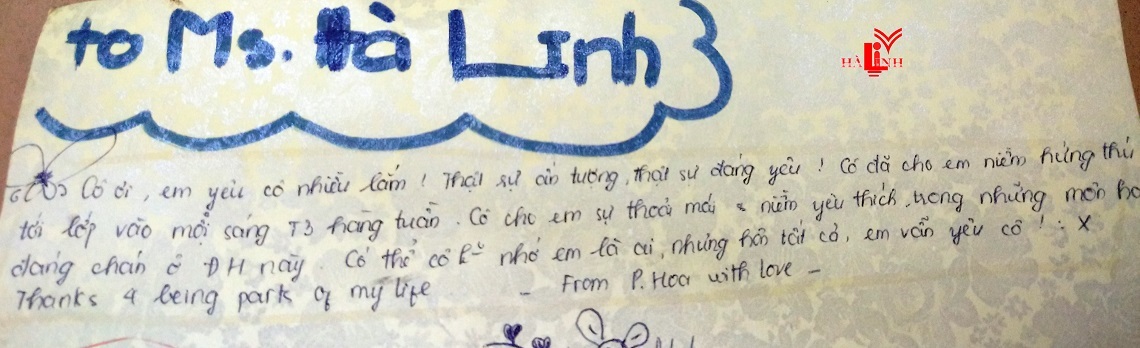 to Ms. Hà Linh
HÀ LINH
Cô ơi, em yêu cô nhiều lắm! Thật sự ấn tượng, thật sự đáng yêu! Cô đã cho em niềm hứng thú
tới lớp vào mỗi sáng T3 hàng tuần. Cô cho em sự thoải mái & niềm yêu thích trong những môn họ
đáng chán ở ĐH này. Có thể cô k nhớ em là ai, nhưng hơn tất cả, em vẫn yêu cô! :x
Thanks 4 being park of my life - From P. Hoa with love -